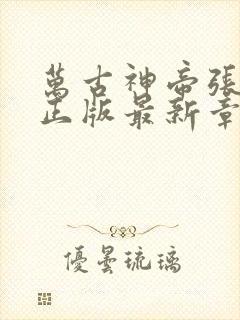 萬古神帝張
正版最新章
優曇琉璃